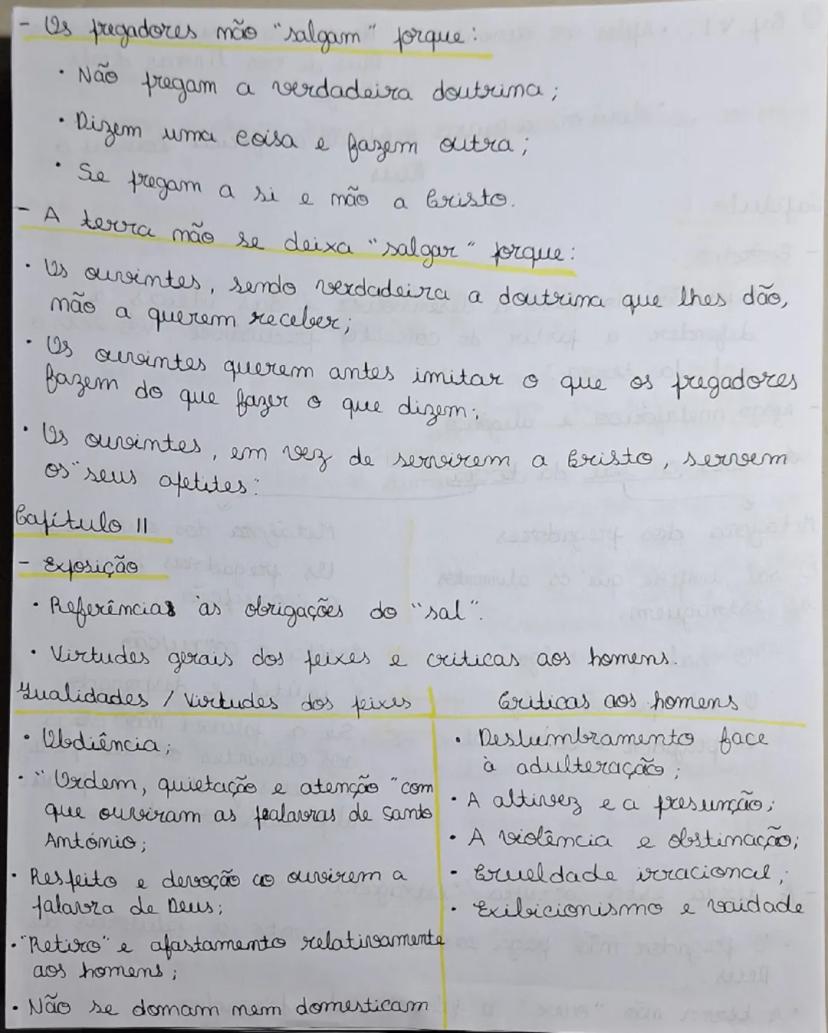 - Os pregadores não "salgam" porque:
• Não pregam a verdadeira doutrina;
• Dizem uma coisa e fazem outra;
• Se pregam a si e não a Cristo.
- A terra não se deixa "salgar" porque:
• Os ouvintes, sendo verdadeira a doutrina que lhes dão,
não a querem receber;
• Os ouvintes querem antes imitar o que os pregadores
fazem do que fazer o que dizem;
• Os ouvintes, em vez de servirem a Cristo, servem
os "seus apetites:
Capítulo II
- Exposição
• Referências às obrigações do "sal".
• Virtudes gerais dos peixes e criticas aos homens.
Qualidades / Virtudes dos peixes
• Obdiência;
• "Ordem, quietação e atenção" com
que ouviram as palavras de Santo
António;
• Respeito e devoção ao ouvirem a
palavra de Deus;
• "Retiro" e afastamento relativamente
aos homens;
• Não se domam nem domesticam
Criticas aos homens
• Deslumbramento face
à adulteração;
• A altivez e a presunção;
• A violência e obstinação;
• Crueldade irracional;
• Exibicionismo e vaidade